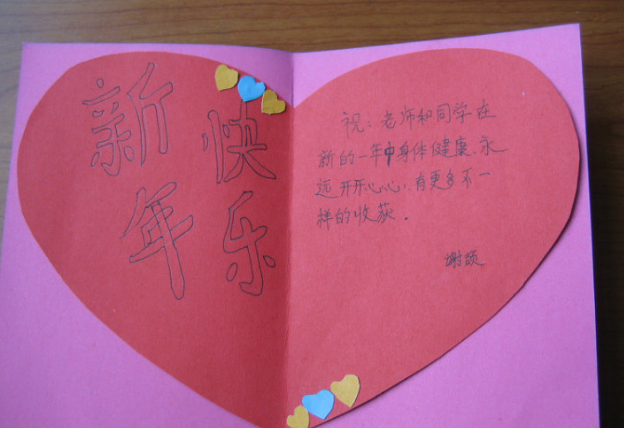 新年
快乐
祝：老师和同学在
新的一年中身体健康、永
远开开心心，有更多不一
样的收获．
谢颂